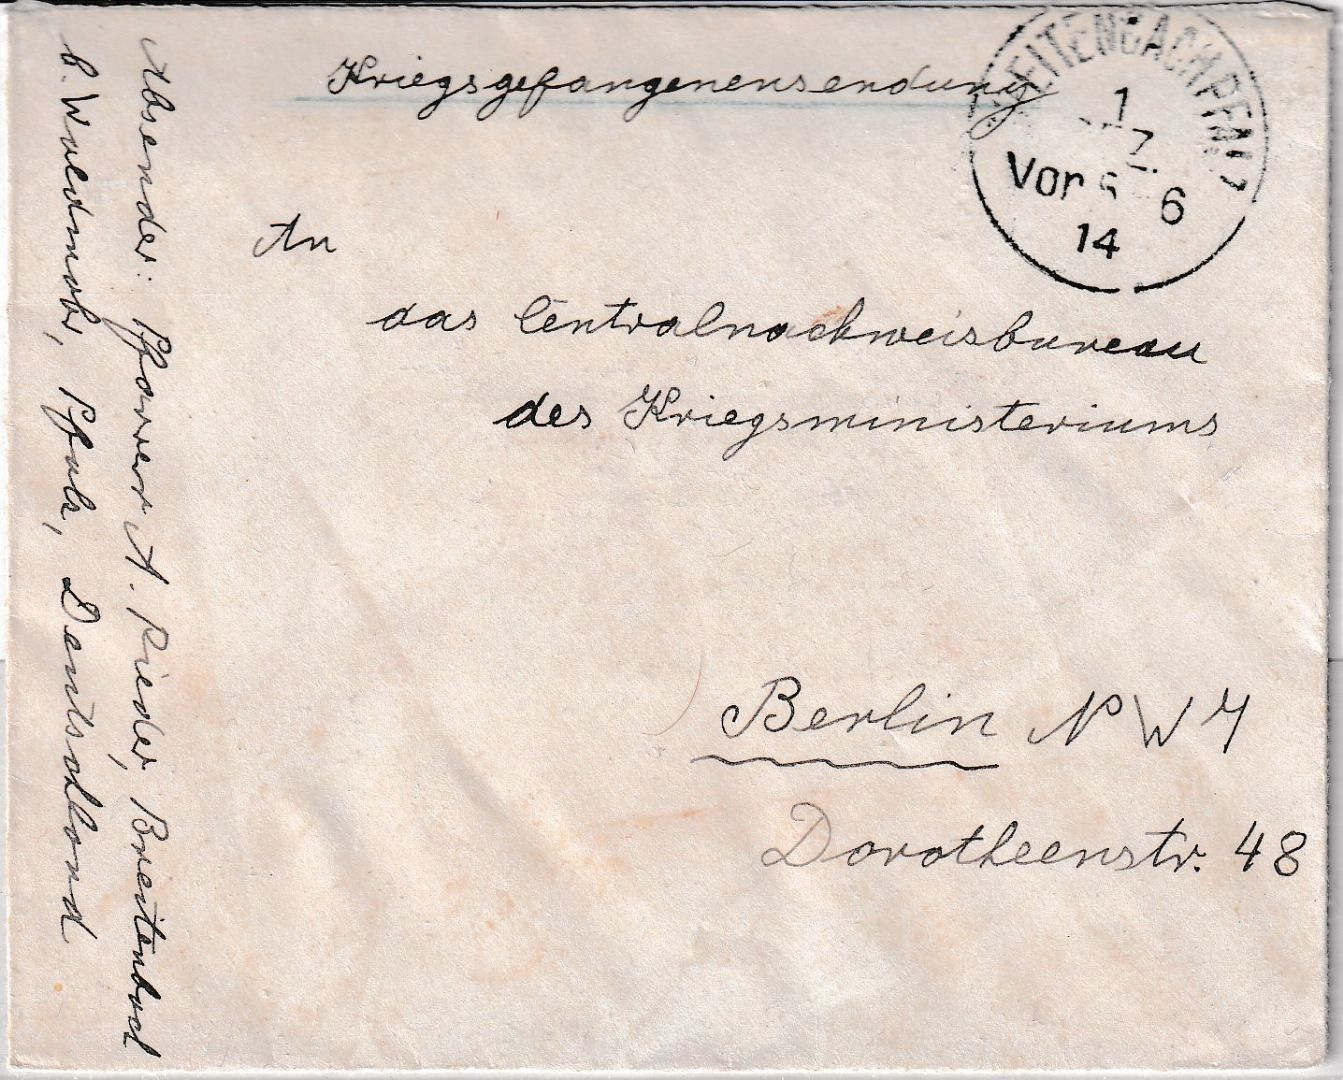 Kriegsgefangenensendung.
BREITENBACH PFALZ
1
7.
Vor 6
14
An
das Centralnachweisbureau
des Kriegsministeriums
Berlin NW 7
Dorotheenstr. 48
Absender: Pfarrer A. Rieder, Breitenbach
b. Waldmohr, Pfalz, Deutschland